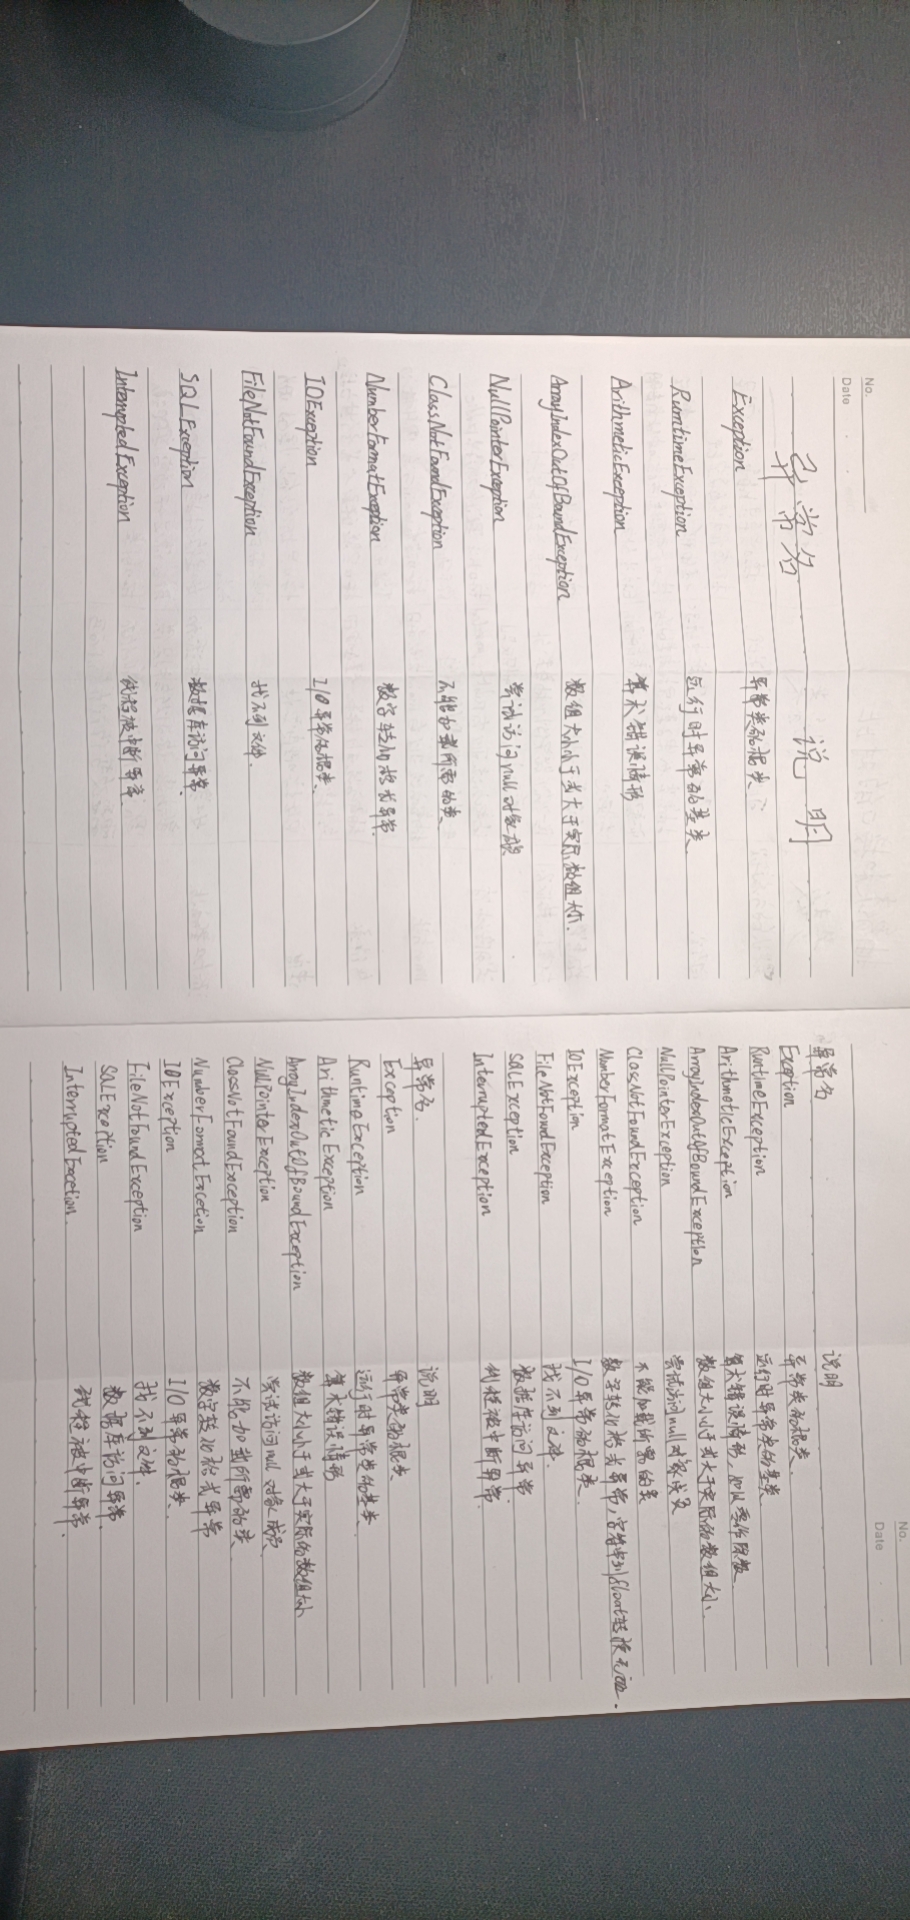 No.
Date
异常名 说明
Exception 异常类的根类
RumtimeException 运行时异常的基类
ArithmeticException 算术错误情形
ArrayIndexOutOfBoundException 数组大小小于或大于实际数组大小.
NullPointerException 尝试访问null对象成员
ClassNotFoundException 不能加载所需的类
NumberFormatException 数字转化格式异常.
IOException I/O异常的根类.
FileNotFoundException 找不到文件.
SQLException 数据库访问异常.
InterruptedException 线程被中断异常.
No.
Date
异常名 说明
Exception 异常类的根类.
RuntimeException 运行时异常类的基类
ArithmeticException 算术错误情形,如以零作除数
ArrayIndexOutOfBoundException 数组大小小于或大于实际的数组大小.
NullPointerException 尝试访问null对象成员
ClassNotFoundException 不能加载所需的类
NumberFormatException 数字转化格式异常,字符串到float转换无
IOException I/O异常的根类.
FileNotFoundException 找不到文件.
SQLException 数据库访问异常.
InterruptedException 线程被中断异常.
异常名. 说明
Exception 异常类的根类
RuntimeException 运行时异常类的基类
Arithmetic Exception 算术错误情形
ArrayIndexOutOfBoundException 数组大小小于或大于实际的数组大小
NullPointerException 尝试访问null对象成员
ClassNotFoundException 不能加载所需的类
NumberFormatExcetion 数字转化格式异常
IOException I/O异常的根类.
FileNotFoundException 找不到文件.
SQLException 数据库访问异常.
InterruptedExcetion. 线程被中断异常.